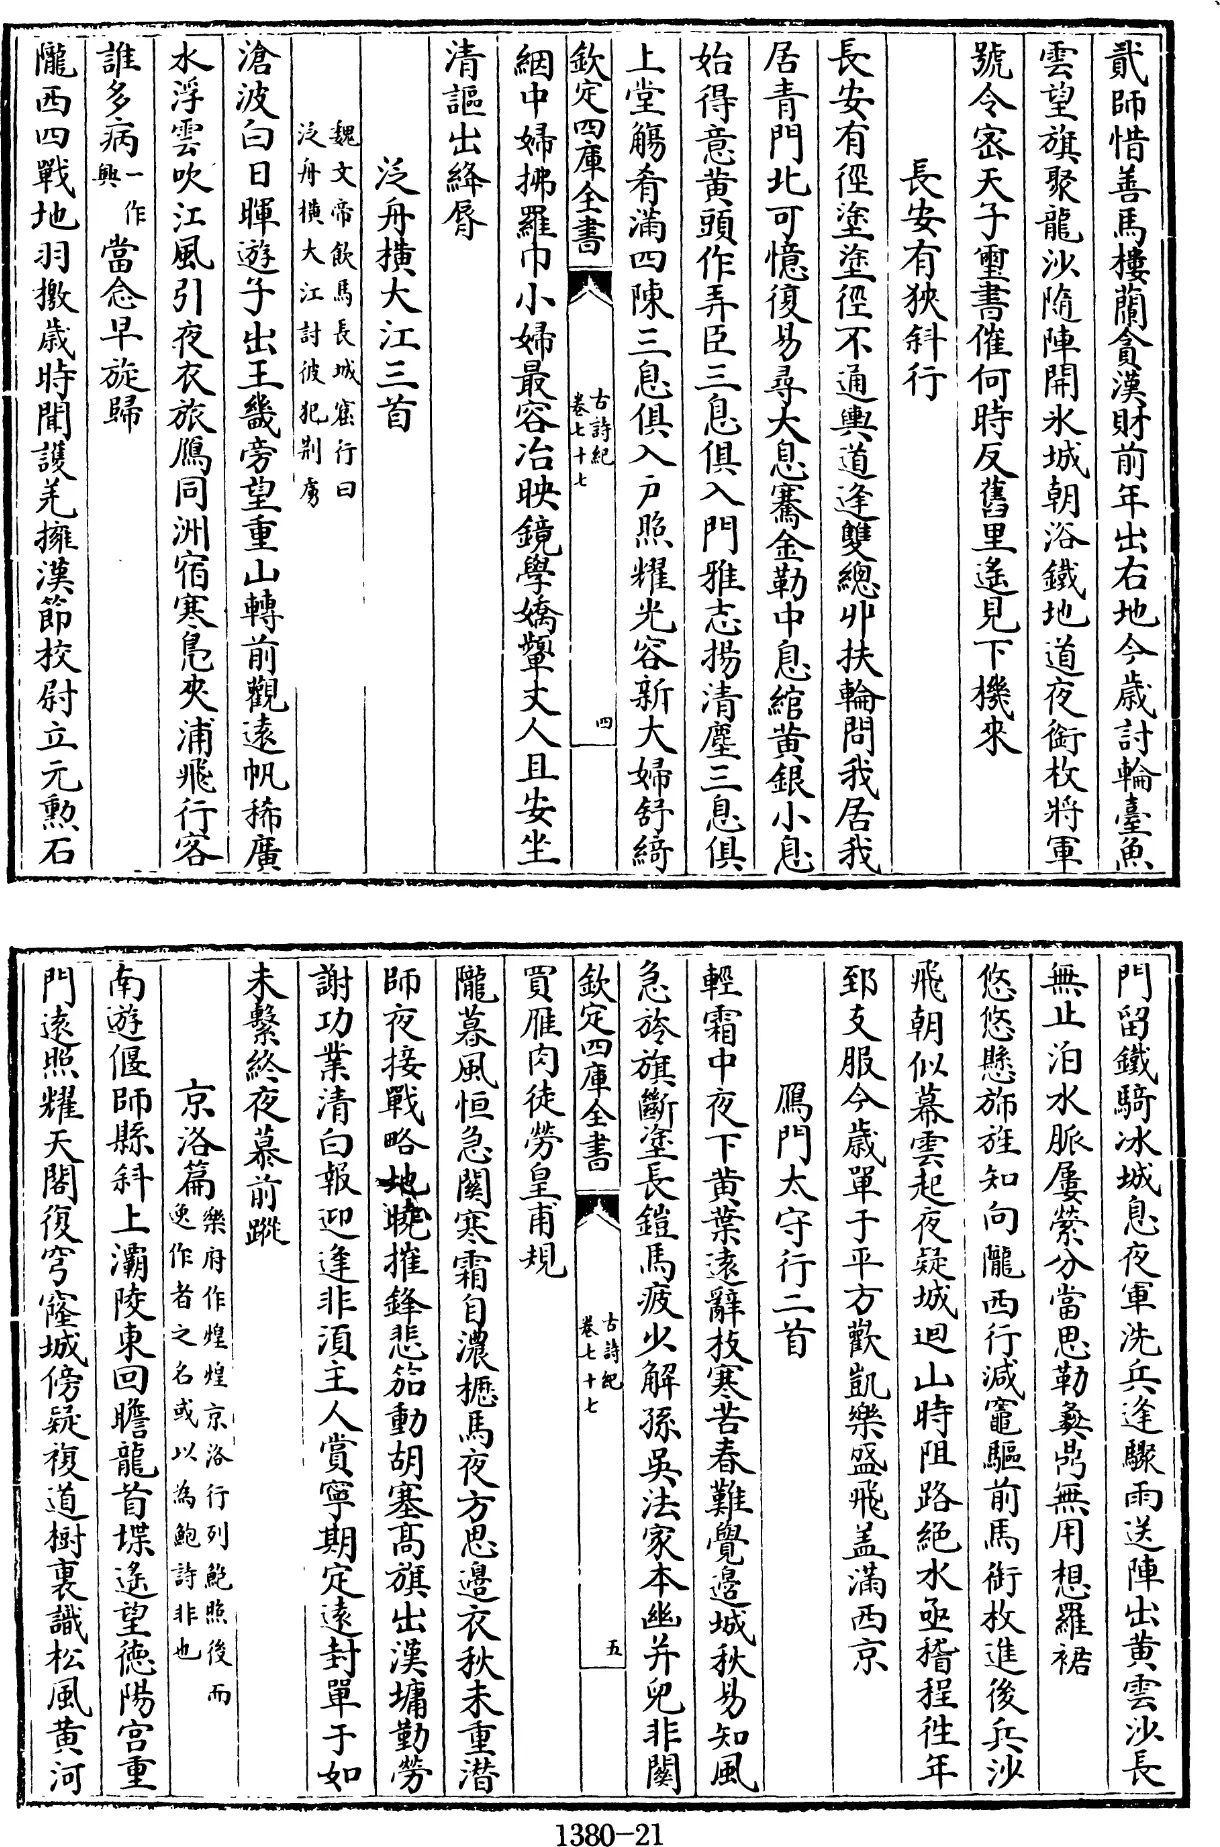 貳師惜善馬樓蘭貪漢財前年出右地今歲討輪臺魚
雲望旗聚龍沙隨陣開氷城朝浴鐵地道夜銜枚將軍
號令宻天子璽書催何時反舊里遥見下機來
長安有狹斜行
長安有徑塗塗徑不通輿道逢雙總丱扶輪問我居我
居青門北可憶復易尋大息騫金勒中息綰黄銀小息
始得意黄頭作弄臣三息俱入門雅志揚清塵三息俱
上堂觴肴滿四陳三息俱入户照耀光容新大婦舒綺
欽定四庫全書
古詩紀
卷七十七
四
絪中婦拂羅巾小婦最容冶映鏡學嬌顰丈人且安坐
清謳出絳脣
泛舟横大江三首
魏文帝飲馬長城窟行曰
泛舟横大江討彼犯荆虜
滄波白日暉遊子出王畿旁望重山轉前觀逺帆稀廣
水浮雲吹江風引夜衣旅鴈同洲宿寒鳬夾浦飛行客
誰多病
一作
興
當念早旋歸
隴西四戰地羽檄歳時聞護羌擁漢節校尉立元勲石
門留鐵騎冰城息夜軍洗兵逢驟雨送陣出黄雲沙長
無止泊水脈屢縈分當思勒彝鼎無用想羅裙
悠悠懸斾旌知向隴西行減竈驅前馬銜枚進後兵沙
飛朝似幕雲起夜疑城迴山時阻路絶水亟稽程徃年
郅支服今歲單于平方歡凱樂盛飛盖滿西京
鴈門太守行二首
輕霜中夜下黄葉逺辭枝寒苦春難覺邉城秋易知風
急旍旗斷塗長鎧馬疲少解孫吳法家本幽并兒非關
欽定四庫全書
古詩紀
卷七十七
五
買雁肉徒勞皇甫規
隴暮風恒急關寒霜自濃櫪馬夜方思邉衣秋未重潜
師夜接戰略地曉摧鋒悲笳動胡塞髙旗出漢墉勤勞
謝功業清白報迎逢非須主人賞寧期定逺封單于如
未繫終夜慕前蹤
京洛篇
樂府作煌煌京洛行列鮑照後而
逸作者之名或以為鮑詩非也
南遊偃師縣斜上灞陵東回瞻龍首堞遥望德陽宫重
門逺照耀天閣復穹窿城傍疑複道樹裏識松風黄河
1380-21